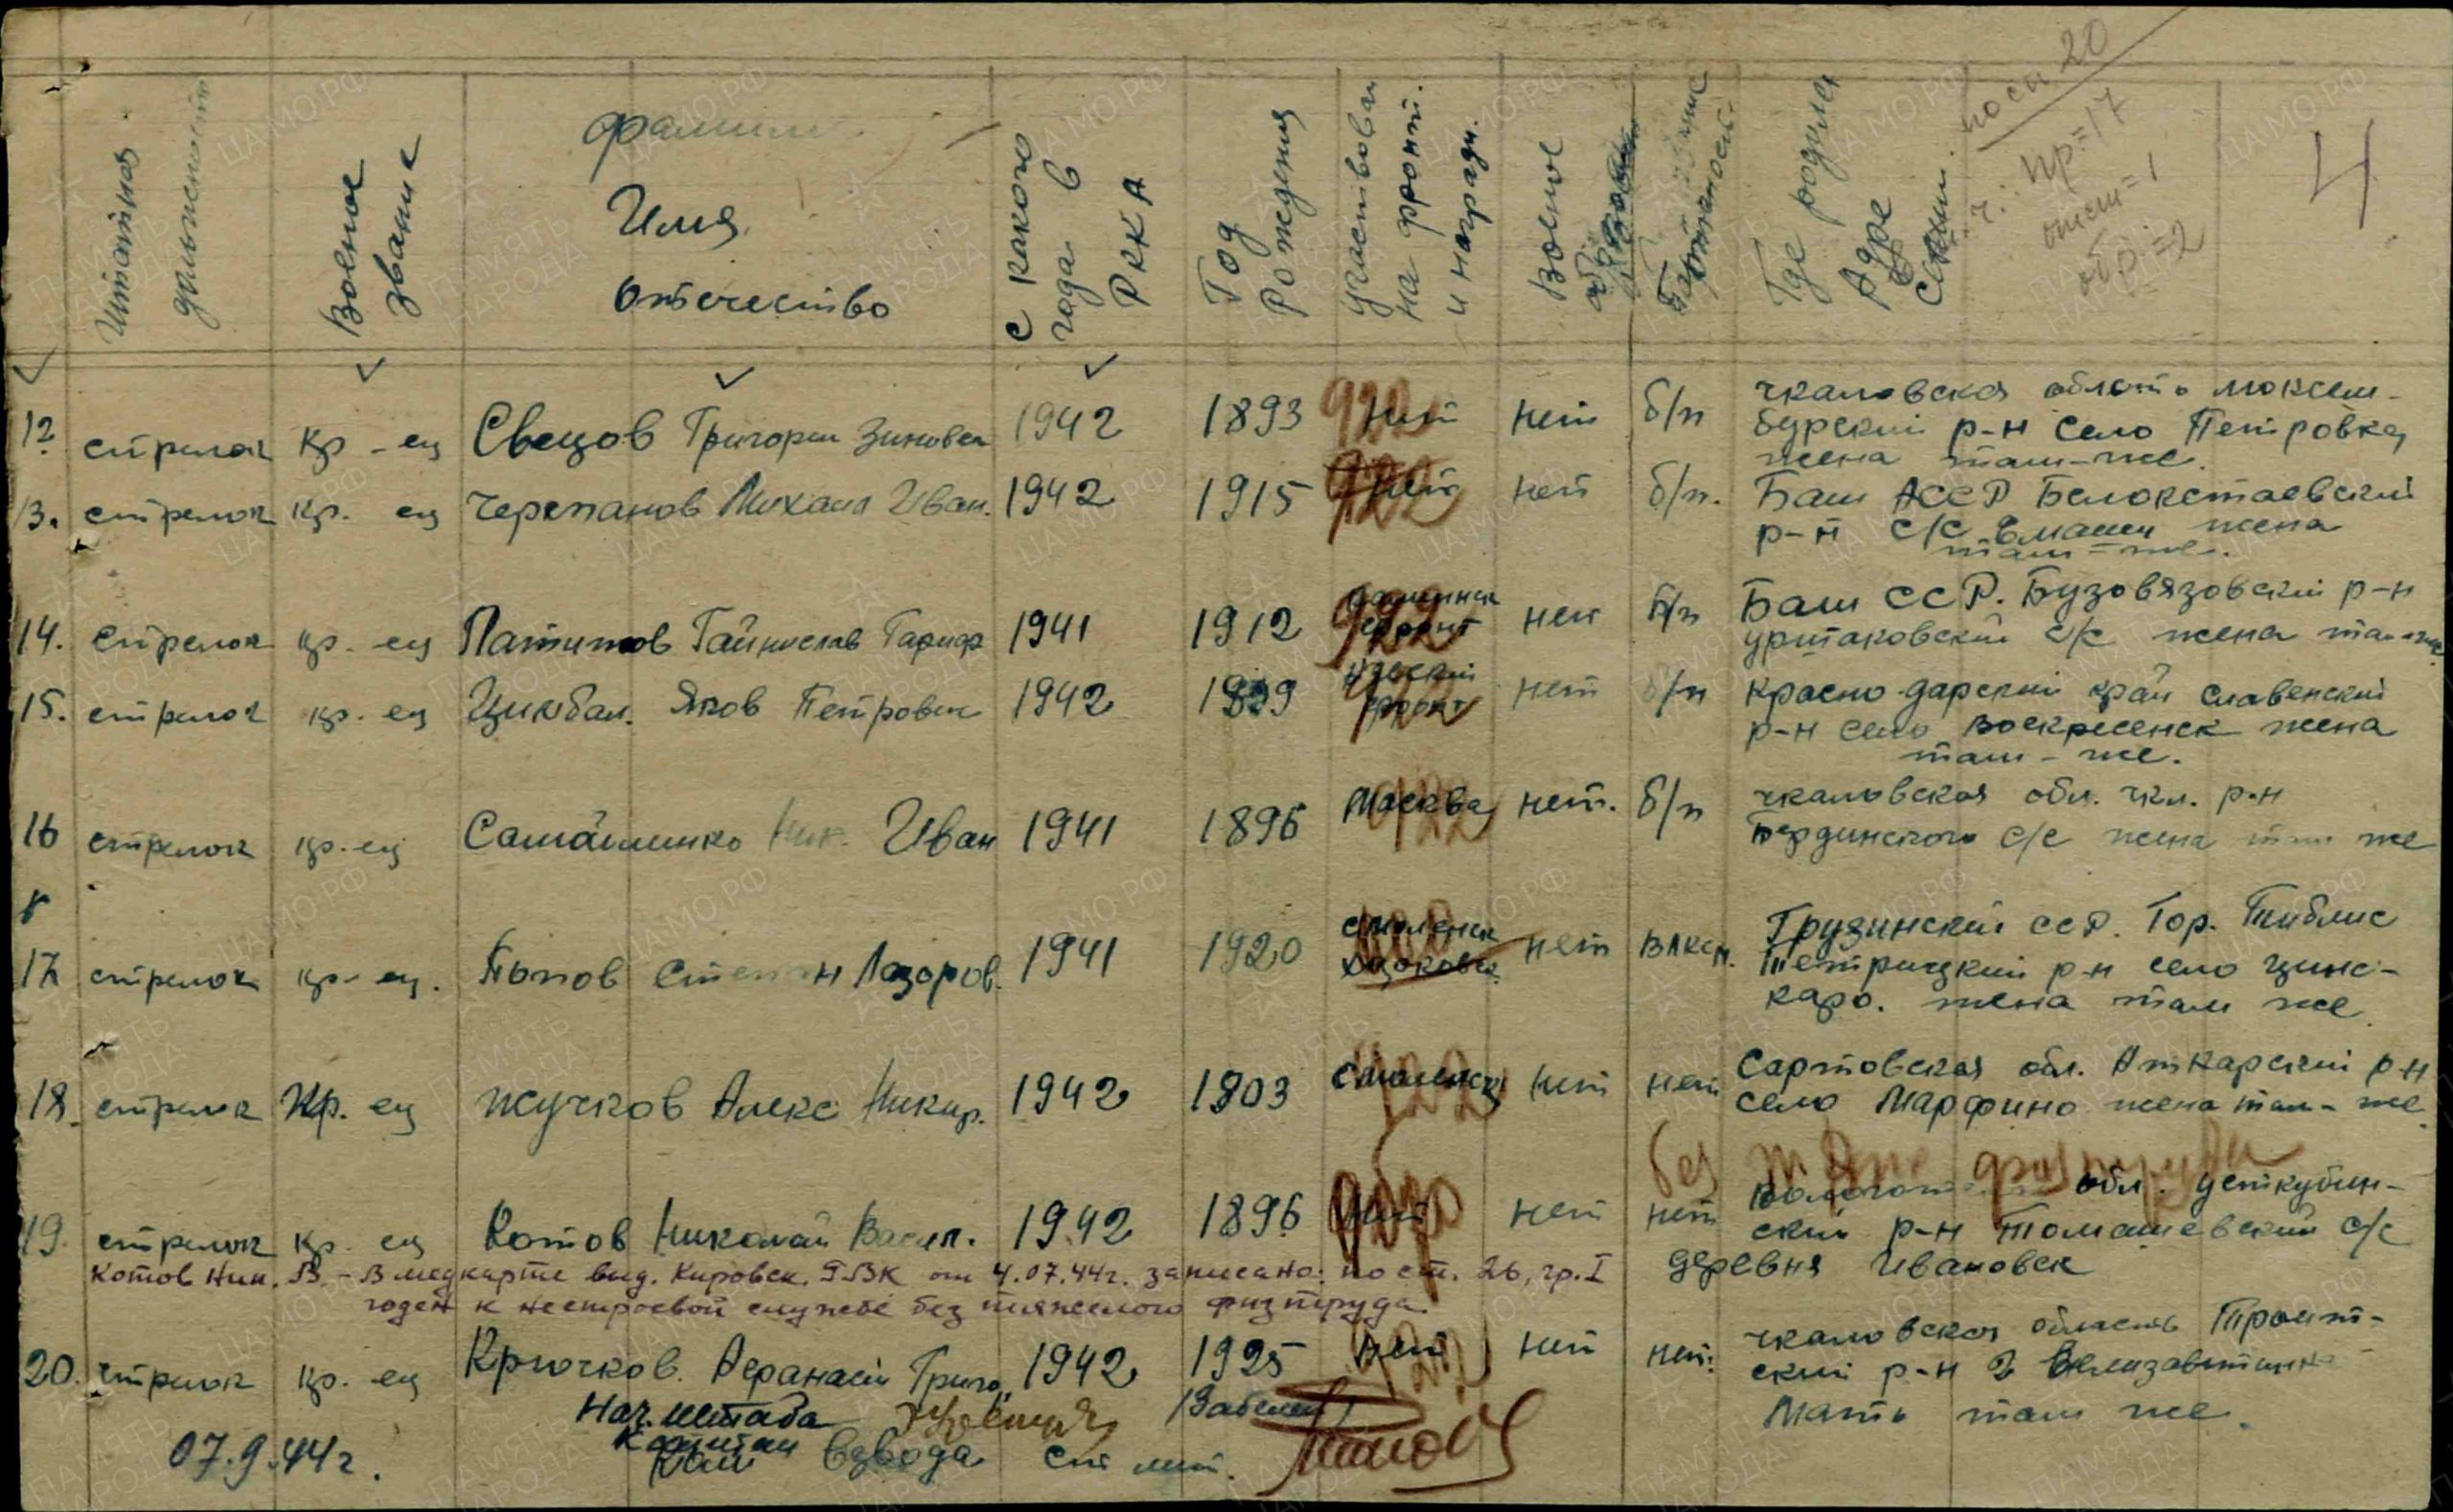 Штатная должность
Военное звание
Фамили
Имя
Отчество
С какого года в РККА
Год рождения
участвовал на фронт. и награди.
Военое
Где родился
Адре
20
пр=17
обр.=2
4
12. стрелок кр-ец Свецов Григорий Зиновеи 1942 1893 нет нет б/п Чкаловская область
бурский р-н село Петровка
жена там-же.
13. стрелок кр. ец Черепанов Михаил Иван. 1942 1915 нет нет б/п. Баш АССР Белокетаевский
р-н с/с Емаши жена
там-же.
14. стрелок кр. ец Гариф 1941 1912 фронт нет б/п Баш ССР. Бузовязовский р-н
уртаковский с/с жена там-же
15. стрелок кр. ец Цимбал. Яков Петрович 1942 1899 фронт нет б/п Красно-дарский край славенский
р-н село Воскресенск жена
там-же.
16 стрелок кр. ец Ник. Иван 1941 1896 Москва нет. б/п Чкаловская обл. чкл. р-н
Бердинского с/с жена там же
17 стрелок кр-ец. Попов Степан Лазоров. 1941 1920 смоленск нет ВЛКСМ. Грузинский ССР. Гор. Тиблис
Тетрицкий р-н село цинс-
каро. жена там же
18. стрелок кр. ец Жучков Алекс Никир. 1942 1903 Смоленск нет нет Сартовская обл. Аткарский р-н
село Марфино жена там-же.
без тяж физтруда
19. стрелок кр. ец Котов Николай Васил. 1942 1896 нет нет нет обл. усткубин-
ский р-н Томашевский с/с
деревня Ивановск
Котов Ник. В. - В медкарте выд. Кировск. ГВК от 4.07.44г. записано: по ст. 26, гр. I
годен к нестроевой службе без тяжелого физтруда.
20. стрелок кр. ец Крючков. Афанасий Григо 1942 1925 нет нет нет. Чкаловская область Троит-
ский р-н 2 Елизаветинка
Мать там же.
Нач. штаба
капитан
Ком взвода
07.9.44г.